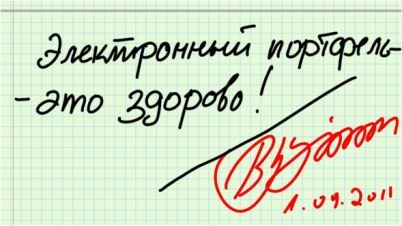 Электронный портфель
- это здорово!
1.09.2011